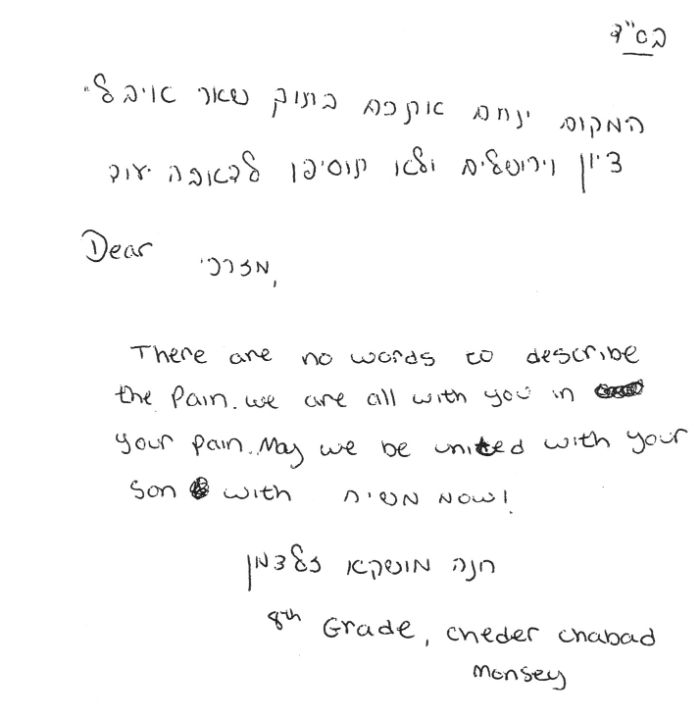 בס"ד
המקום ינחם אתכם בתוך שאר אוי בלי
ציון וירושלים ולא תוסיפו לדאבה עוד
Dear מזרחי,
There are no words to describe
the Pain. we are all with you in
your pain. May we be united with your
Son with משיח NOW!
חנה מושקא זלצמן
8th Grade, cheder chabad
monsey